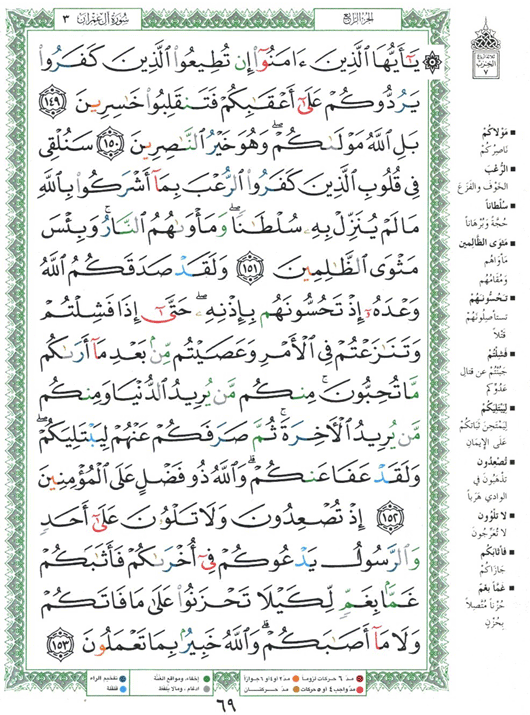 سُورَةُ آلِ عِمْرَان ٣
الجُزءُ الرَّابِعُ
يَـٰٓأَيُّهَا ٱلَّذِينَ ءَامَنُوٓا۟ إِن تُطِيعُوا۟ ٱلَّذِينَ كَفَرُوا۟
يَرُدُّوكُمْ عَلَىٰٓ أَعْقَـٰبِكُمْ فَتَنقَلِبُوا۟ خَـٰسِرِينَ ١٤٩
بَلِ ٱللَّهُ مَوْلَىٰكُمْ ۖ وَهُوَ خَيْرُ ٱلنَّـٰصِرِينَ ١٥٠ سَنُلْقِى
فِى قُلُوبِ ٱلَّذِينَ كَفَرُوا۟ ٱلرُّعْبَ بِمَآ أَشْرَكُوا۟ بِٱللَّهِ
مَا لَمْ يُنَزِّلْ بِهِۦ سُلْطَـٰنًا ۖ وَمَأْوَىٰهُمُ ٱلنَّارُ ۚ وَبِئْسَ
مَثْوَى ٱلظَّـٰلِمِينَ ١٥١ وَلَقَدْ صَدَقَكُمُ ٱللَّهُ
وَعْدَهُۥٓ إِذْ تَحُسُّونَهُم بِإِذْنِهِۦ ۖ حَتَّىٰٓ إِذَا فَشِلْتُمْ
وَتَنَـٰزَعْتُمْ فِى ٱلْأَمْرِ وَعَصَيْتُم مِّنۢ بَعْدِ مَآ أَرَىٰكُم
مَّا تُحِبُّونَ ۚ مِنكُم مَّن يُرِيدُ ٱلدُّنْيَا وَمِنكُم
مَّن يُرِيدُ ٱلْـَٔاخِرَةَ ۚ ثُمَّ صَرَفَكُمْ عَنْهُمْ لِيَبْتَلِيَكُمْ ۖ
وَلَقَدْ عَفَا عَنكُمْ ۗ وَٱللَّهُ ذُو فَضْلٍ عَلَى ٱلْمُؤْمِنِينَ
١٥٢ إِذْ تُصْعِدُونَ وَلَا تَلْوُۥنَ عَلَىٰٓ أَحَدٍ
وَٱلرَّسُولُ يَدْعُوكُمْ فِىٓ أُخْرَىٰكُمْ فَأَثَـٰبَكُمْ
غَمًّۢا بِغَمٍّ لِّكَيْلَا تَحْزَنُوا۟ عَلَىٰ مَا فَاتَكُمْ
وَلَا مَآ أَصَـٰبَكُمْ ۗ وَٱللَّهُ خَبِيرٌۢ بِمَا تَعْمَلُونَ ١٥٣
الحِزْب
٧
مَوْلاكُمْ
نَاصِرُكُمْ
الرُّعْبَ
الخَوْفَ وَالفَزَعَ
سُلْطَاناً
حُجَّةً وَبُرْهَاناً
مَثْوَى الظَّالِمِين
مَأْوَاهُم
وَمُقَامُهُم
تَحُسُّونَهُمْ
تَسْتَأْصِلُونَهُمْ
قَتْلاً
فَشِلْتُمْ
جَبُنْتُمْ عَن قِتَالِ
عَدُوِّكُم
لِيَبْتَلِيَكُمْ
لِيَمْتَحِنَ ثَبَاتَكُمْ
عَلَى الإِيمَانِ
تُصْعِدُون
تَذْهَبُونَ فِي
الوَادِي هَرَباً
لا تَلْوُون
لا تُعَرِّجُونَ
فَأَثَابَكُم
جَازَاكُمْ
غَمّاً بِغَمٍّ
حُزْناً مُتَّصِلاً
بِحُزْنٍ
مدّ ٦ حركات لزوماً
مدّ ٢ أو ٤ أو ٦ جوازاً
إخفاء، ومواقع الغُنَّة
تفخيم الراء
مدّ واجب ٤ أو ٥ حركات
مدّ حركتان
ادغام، ومالا يُلفَظ
قلقلة
٦٩